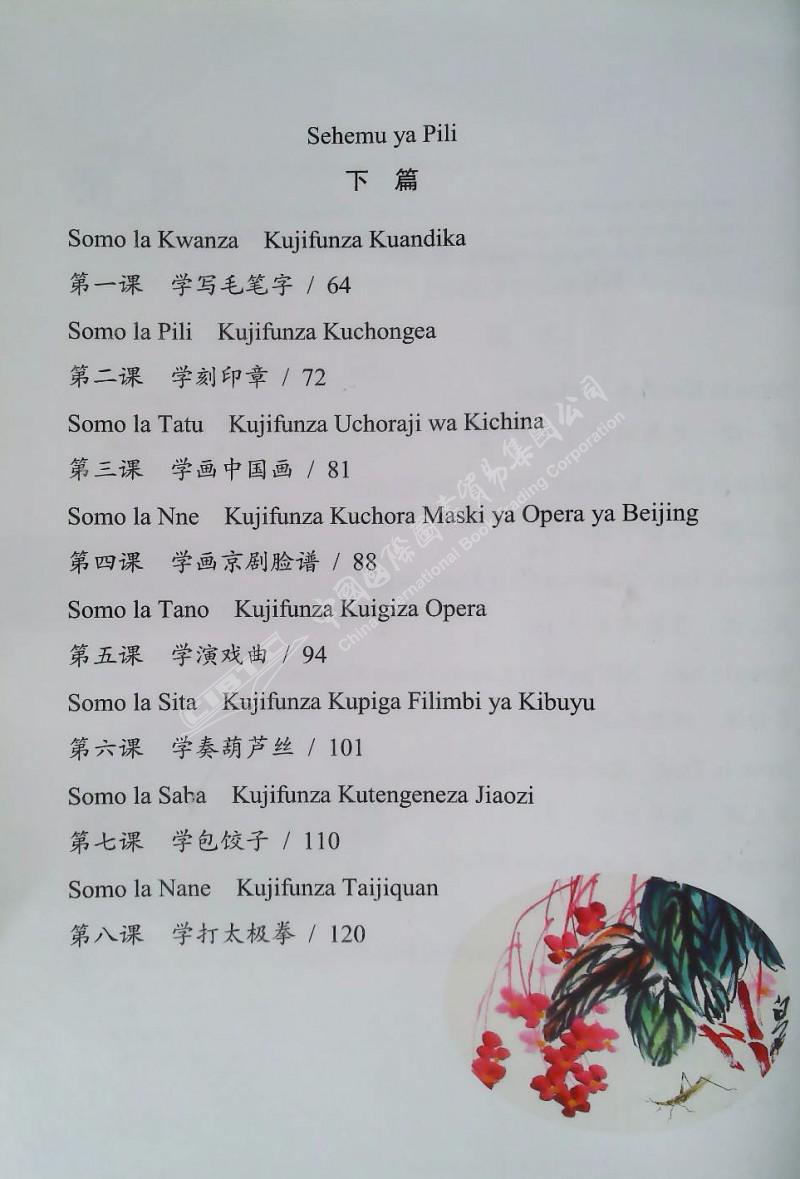 Sehemu ya Pili
下 篇
Somo la Kwanza Kujifunza Kuandika
第一课 学写毛笔字 / 64
Somo la Pili Kujifunza Kuchongea
第二课 学刻印章 / 72
Somo la Tatu Kujifunza Uchoraji wa Kichina
第三课 学画中国画 / 81
Somo la Nne Kujifunza Kuchora Maski ya Opera ya Beijing
第四课 学画京剧脸谱 / 88
Somo la Tano Kujifunza Kuigiza Opera
第五课 学演戏曲 / 94
Somo la Sita Kujifunza Kupiga Filimbi ya Kibuyu
第六课 学奏葫芦丝 / 101
Somo la Saba Kujifunza Kutengeneza Jiaozi
第七课 学包饺子 / 110
Somo la Nane Kujifunza Taijiquan
第八课 学打太极拳 / 120
CIBTC
中国国际圖書貿易集团公司
China International Book Trading Corporation